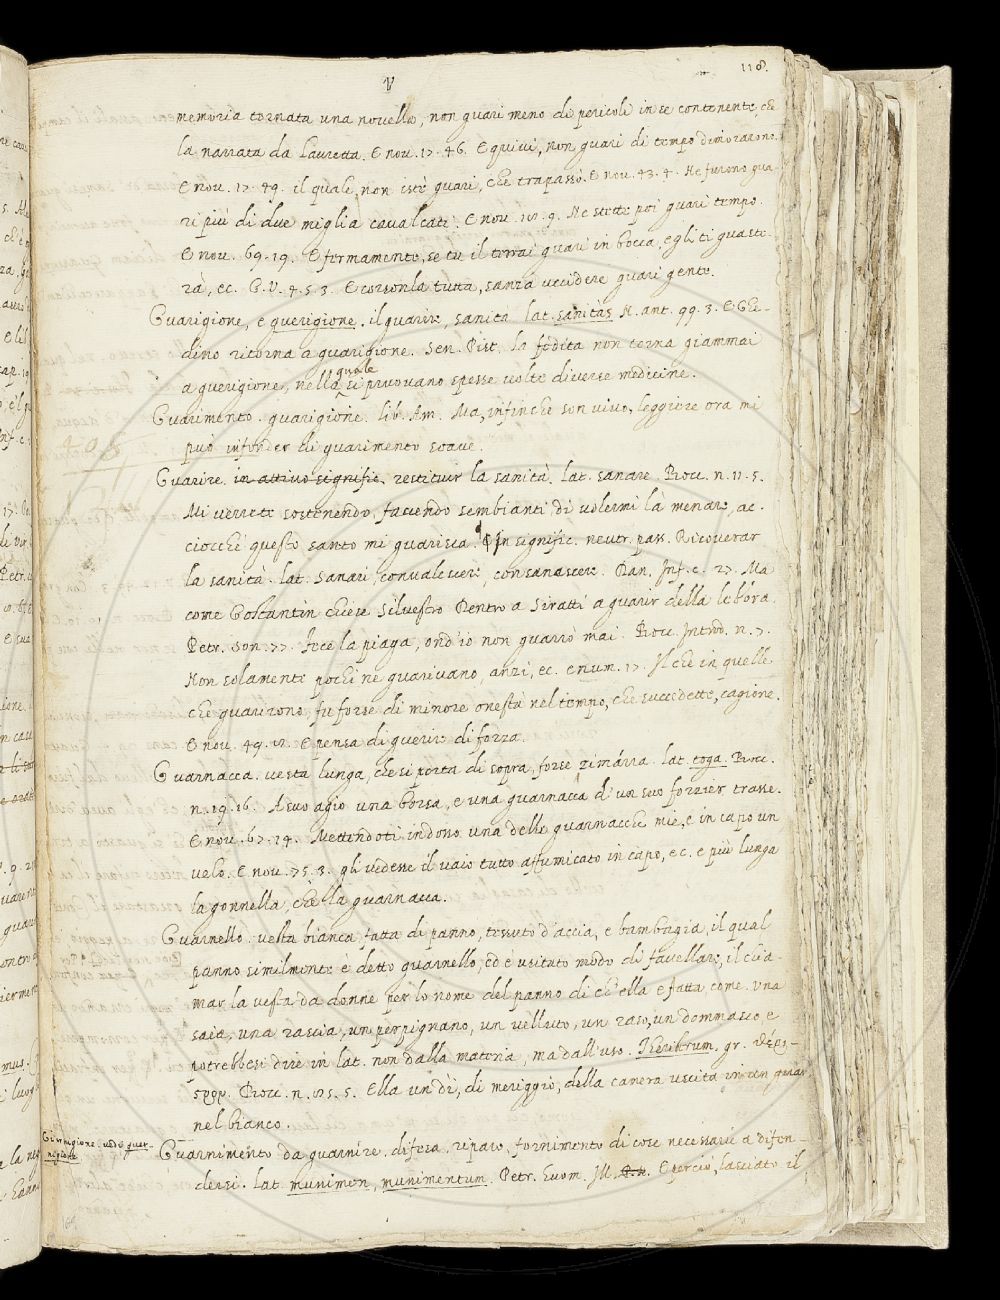 118.
V
memoria tornata una novella, non guari meno di pericoli in se contenente, che
la narrata da Lauretta. E nov. 17. 46. E quivi, non guari di tempo dimorarono.
E nov. 17. 49. il quale non istè guari, che trapassò. E nov. 43. 4. Ne furono gua-
ri più di due miglia cavalcati. E nov. 9. Ne stette poi guari tempo.
E nov. 69. 19. E fermamente, se tu il terrai guari in bocca, egli ti guaste-
rà, ec. G. V. 4. 5. 3. E corsonla tutta, sanza uccidere guari gente.
Guarigione, e guerigione. il guarire, sanità lat. sanitas N. ant. 99. 3. E Ghe-
dino ritorna a guarigione. Sen. Pist. La fedita non torna giammai
a guerigione, nella quale si pruovano spesse volte diverse medicine.
Guarimento. guarigione. lib. Am. Ma, infinche son vivo, leggiere ora mi
può infonder di guarimento soave.
Guarire. in attivo signific. restituir la sanità. lat. sanare Bocc. n. 11. 5.
Mi verrete sostenendo, facendo sembianti di volermi là menare, ac-
ciocchè questo santo mi guarisca. In signific. neutr. pass. Ricoverar
la sanità. lat. sanari, convalescere, consanascere. Dan. Inf. c. 27. Ma
come Gostantin chiese Silvestro Dentro a Siratti a guarir della lebbra.
Petr. Son. 77. Fece la piaga, ond'io non guarrò mai. Bocc. Introd. n. 7.
Non solamente pochi ne guarivano, anzi, ec. e num. 17. Il che in quelle
che guarirono, fu forse di minore onestà nel tempo, che succedette, cagione.
E nov. 49. E pensa di guerire di forza.
Guarnacca. vesta lunga, che si porta di sopra, forse zimárra. lat. toga. Bocc.
n. 19. 16. A suo agio una borsa, e una guarnacca d'un suo forzier trasse.
E nov. 67. 14. Mettendoti indosso una delle guarnacche mie, e in capo un
velo. E nov. 75. 3. gli vedesse il vaio tutto affumicato in capo, ec. e più lunga
la gonnella, che la guarnacca.
Guarnello. vesta bianca, fatta di panno, tessuto d'accia, e bambagia, il qual
panno similmente è detto guarnello, ed e usitato modo di favellare, il chia-
mar la vesta da donne per lo nome del panno di ch'ella e fatta come. una
saia, una rascia, un perpignano, un velluto, un raso, un dommasco e
potrebbesi dire in lat. non dalla materia, ma dall'uso. Theristrum. gr. θέρι-
στρον. Bocc. n. 25. 5. Ella un dì, di meriggio, della camera uscita in un guar
nel bianco.
Guernigione. vedi guer-
nigione
Guarnimento da guarnire. difesa. riparo. fornimento di cose necessarie a difen-
dersi. lat. munimen, munimentum. Petr. Huom. Ill. Esercio, lasciato il